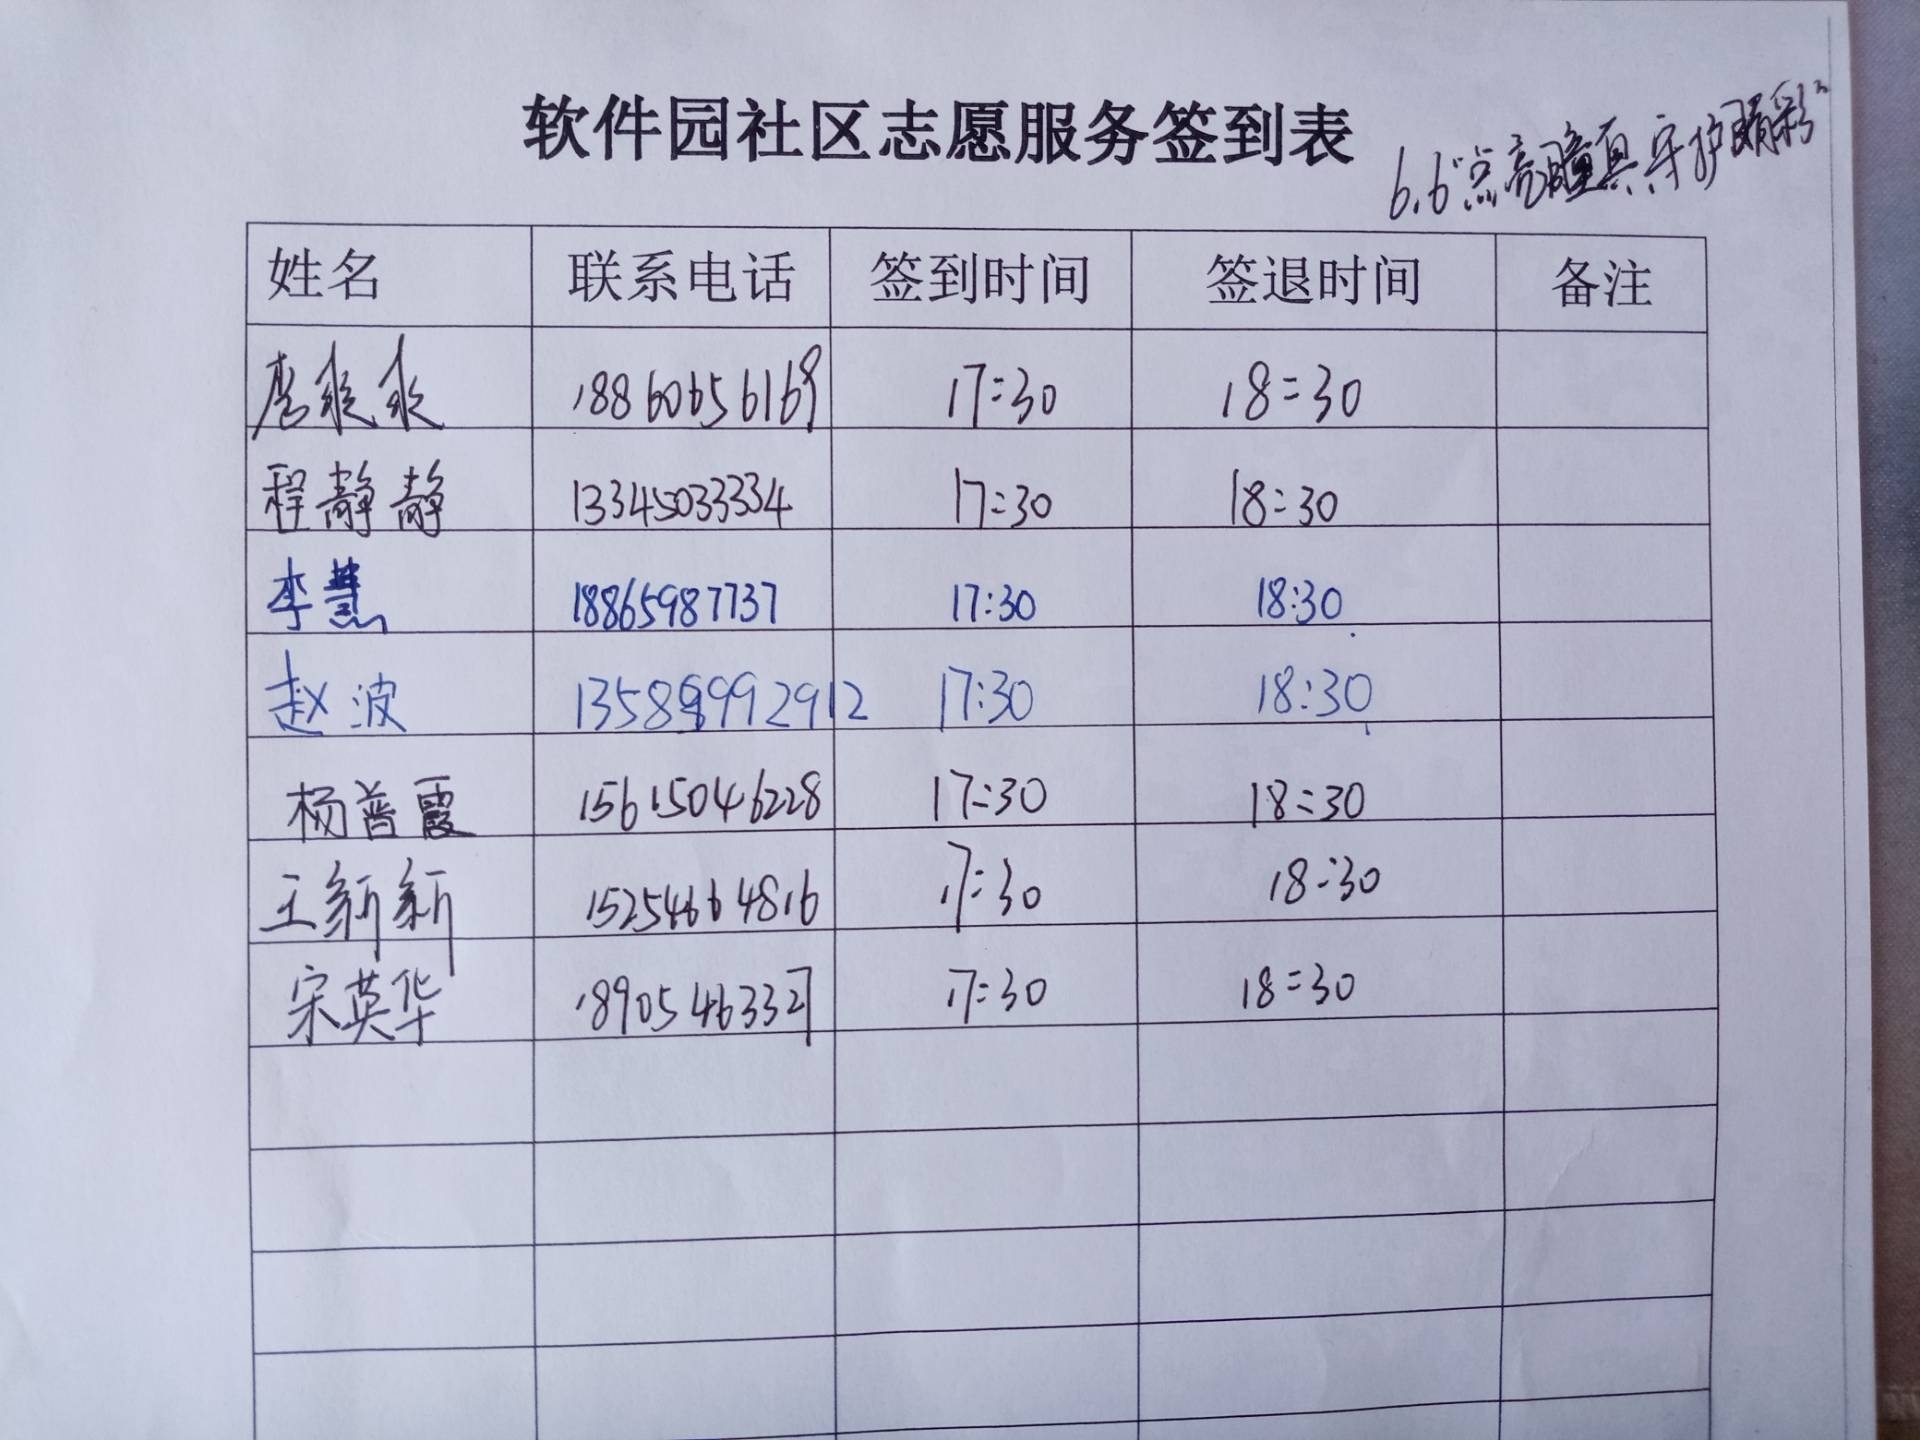 软件园社区志愿服务签到表
6.6"点亮瞳真守护睛彩"
姓名 联系电话 签到时间 签退时间 备注
18860656169 17:30 18:30
程静静 13345033334 17:30 18:30
李慧 18865987737 17:30 18:30
赵波 17:30 18:30
杨普霞 15615046228 17:30 18:30
王新新 15254664816 17:30 18:30
宋英华 18905463327 17:30 18:30